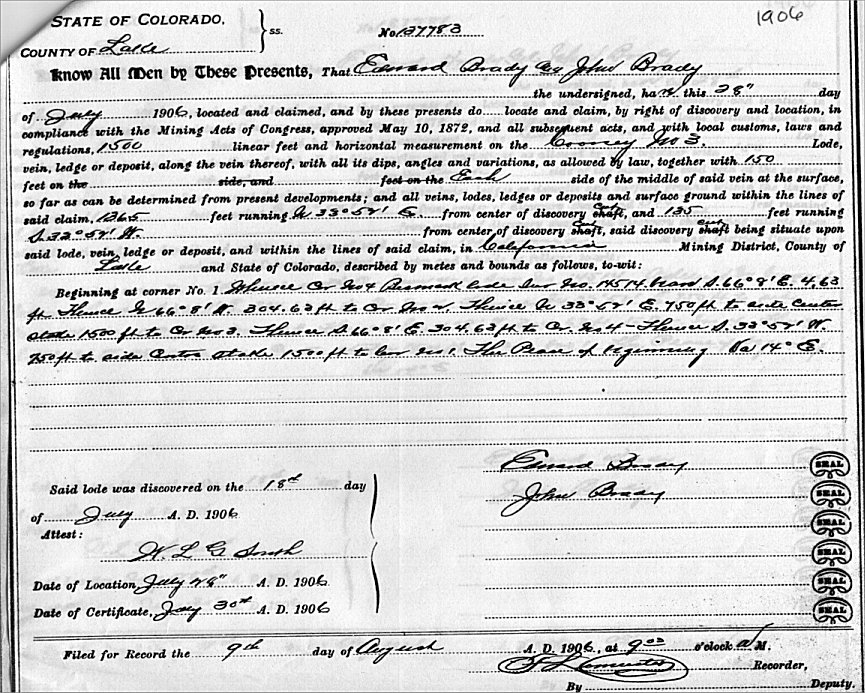 1906
STATE OF COLORADO,
COUNTY OF Lake } ss. No 137783
Know All Men by These Presents, That Edward Brady & John Brady
the undersigned, ha ve this 28" day
of July 1906, located and claimed, and by these presents do locate and claim, by right of discovery and location, in
compliance with the Mining Acts of Congress, approved May 10, 1872, and all subsequent acts, and with local customs, laws and
regulations, 1500 linear feet and horizontal measurement on the Cooney No 3. Lode,
vein, ledge or deposit, along the vein thereof, with all its dips, angles and variations, as allowed by law, together with 150
feet on the side, and feet on the Each side of the middle of said vein at the surface,
so far as can be determined from present developments; and all veins, lodes, ledges or deposits and surface ground within the lines of
said claim, 1365 feet running N 33° 52' E. from center of discovery shaft, Cut and 135 feet running
S. 33° 52' W. from center of discovery shaft, Cut said discovery shaft cut being situate upon
said lode, vein, ledge or deposit, and within the lines of said claim, in California Mining District, County of
Lake and State of Colorado, described by metes and bounds as follows, to-wit:
Beginning at corner No. 1 Whence Cor No 4 Lode Sur No. 14514 bears S. 66° 8' E. 4.63
ft Thence N 66° 8' W. 304.63 ft to Cr No 2. Thence N 33° 52' E. 750 ft to side Center
stake 1500 ft to Cr No 3. Thence S. 66° 8' E. 304.63 ft to Cr. No 4 - Thence S. 33° 52' W.
750 ft to side Center stake 1500 ft to Cor No 1. The Place of beginning Va 14° E.
Edward Brady SEAL
Said lode was discovered on the 18th day
John Brady SEAL
of July A. D. 1906
SEAL
Attest:
W. L. G. Smith
SEAL
Date of Location, July 28" A. D. 1906
SEAL
Date of Certificate, July 30th A. D. 1906
SEAL
Filed for Record the 9th day of August A. D. 1906, at 9 00 o'clock a M.
Recorder,
By Deputy.